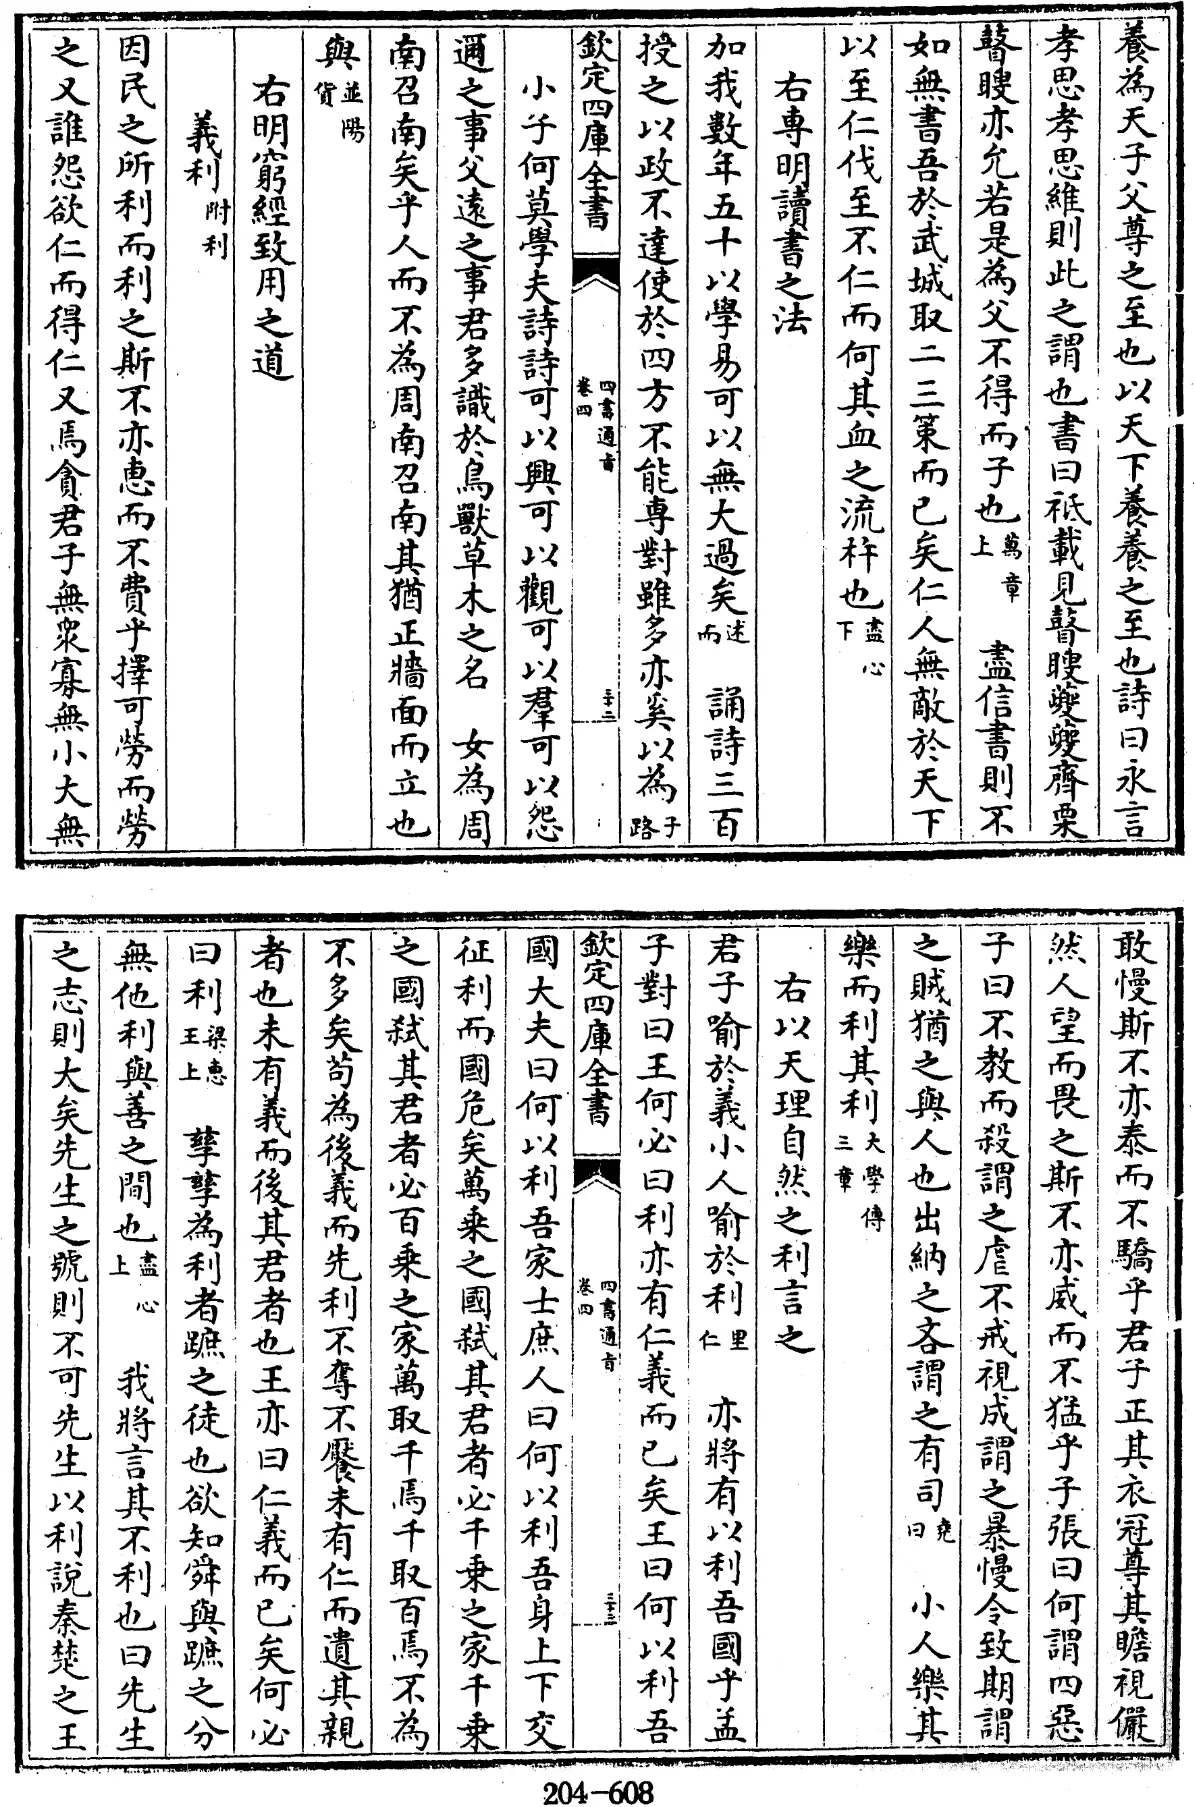 養為天子父尊之至也以天下養養之至也詩曰永言
孝思孝思維則此之謂也書曰祗載見瞽瞍夔夔齊栗
瞽瞍亦允若是為父不得而子也萬章上 盡信書則不
如無書吾於武城取二三策而已矣仁人無敵於天下
以至仁伐至不仁而何其血之流杵也盡心下
右專明讀書之法
加我數年五十以學易可以無大過矣述而 誦詩三百
授之以政不達使於四方不能専對雖多亦奚以為子路
欽定四庫全書 四書通旨卷四 三十二
小子何莫學夫詩詩可以興可以觀可以羣可以怨
邇之事父遠之事君多識於鳥獸草木之名 女為周
南召南矣乎人而不為周南召南其猶正牆面而立也
與並陽貨
右明窮經致用之道
義利附利
因民之所利而利之斯不亦惠而不費乎擇可勞而勞
之又誰怨欲仁而得仁又焉貪君子無衆寡無小大無
敢慢斯不亦泰而不驕乎君子正其衣冠尊其瞻視儼
然人望而畏之斯不亦威而不猛乎子張曰何謂四惡
子曰不教而殺謂之虐不戒視成謂之暴慢令致期謂
之賊猶之與人也出納之吝謂之有司堯曰 小人樂其
樂而利其利大學傳三章
右以天理自然之利言之
君子喻於義小人喻於利里仁 亦將有以利吾國乎孟
子對曰王何必曰利亦有仁義而已矣王曰何以利吾
欽定四庫全書 四書通旨卷四 三十三
國大夫曰何以利吾家士庶人曰何以利吾身上下交
征利而國危矣萬乗之國弑其君者必千乗之家千乗
之國弑其君者必百乗之家萬取千焉千取百焉不為
不多矣苟為後義而先利不奪不饜未有仁而遺其親
者也未有義而後其君者也王亦曰仁義而已矣何必
曰利梁惠王上 孳孳為利者蹠之徒也欲知舜與蹠之分
無他利與善之間也盡心上 我將言其不利也曰先生
之志則大矣先生之號則不可先生以利說秦楚之王
204-608